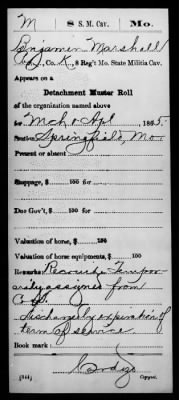 M 8 S. M. Cav. Mo.
Benjamin Marshall
, Co. K, 8 Reg't Mo. State Militia Cav.
Appears on a
Detachment Muster Roll
of the organization named above
for Mch & Apl, 1865.
Station Springfield, Mo
Present or absent
Stoppage, $ 100 for
Due Gov't, $ 100 for
Valuation of horse, $ 100
Valuation of horse equipments, $ 100
Remarks: Recruit Tempor-
arily assigned from
Co.
Discharged by expiration of
term of service
Book mark:
(344) Copyist.